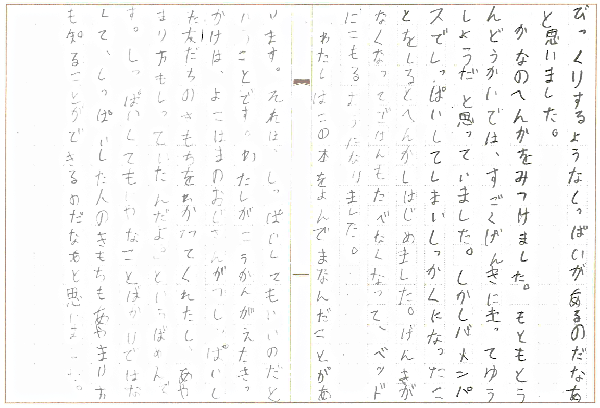 びっくりするようなしっぱいがあるのだなあ
と思いました。
かなのへんかをみつけました。もともとう
んどうかいでは、すごくげんきに走ってゆう
しょうだと思っていました。しかしバトンパ
スでしっぱいしてしまいしっかくになったこ
とをしるとへんかしはじめました。げんきが
なくなってごはんもたべなくなって、ベッド
にこもるようになりました。
わたしはこの本をよんでまなんだことがあ
ります。それは、しっぱいしてもいいのだと
いうことです。わたしがこうかんがえたきっ
かけは、よこはまのおじさんが「しっぱいし
た友だちのきもちをわかってくれたし、あや
まり方もしっていたんだよ。」というばめんで
す。しっぱいしてもいやなことばかりではな
くて、しっぱいした人のきもちもあやまり方
も知ることができるのだなあと思いました。